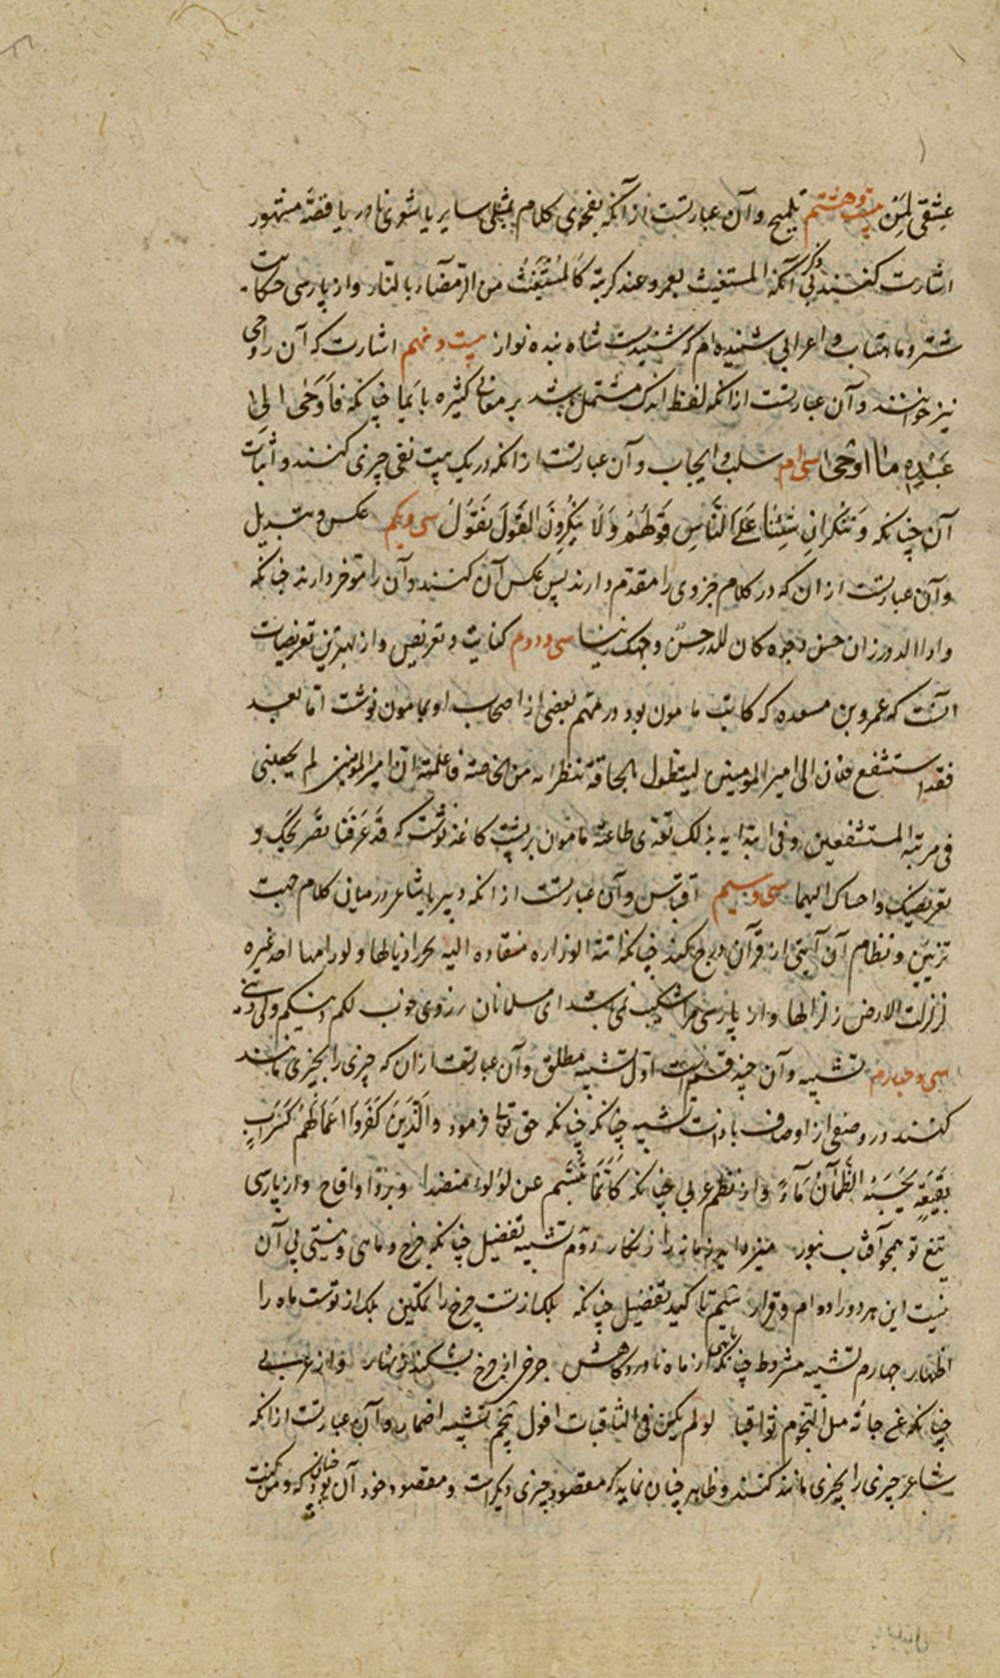 عشقی لمن بیست و هشتم تلمیح و آن عبارتست از آنکه بفحوی کلام بمثلی سایر یا شعری نادر یا قصّهٔ مشهور
اشارت کنند بی ذکر آنکه المستغیث بعمرو عند کربته کالمستغیث من الرمضاء بالنّار و از پارسی حکایت
شتر و ماهتاب و اعرابی شنیده‌ام که شنیدست شاه بنده نواز بیست و نهم اشارت که آن را وحی
نیز خوانند و آن عبارتست از آنکه لفظ اندک مشتمل باشد بر معانی کثیره بایما چنانکه فاوحی الی
عبده ما اوحی سی ام سلب و ایجاب و آن عبارتست از آنکه در یک بیت نفی چیزی کنند و اثبات
آن چنانکه و ننکران شئنا علی الناس قولهم ولا ینکرون القول نقول سی و یکم عکس و تبدیل
و آن عبارتست از آن که در کلام جزوی را مقدم دارند پس عکس آن کنند و آن را مؤخر دارند چنانکه
و اذا الدر زان حسن وجوه کان للدر حسن وجهک زینا سی و دوم کنایت و تعریض و از بهترین تعریضات
آنست که عمرو بن مسعده که کاتب مامون بود در مهم بعضی از اصحاب او بمامون نوشت اما بعد
فقد استشفع فلان الی امیر المومنین لیتطول بالحاقه بنظرائه من الخاصه فاعلمته ان امیر المومنین لم یجعلنی
فی مرتبة المستشفعین و فی ابتدایه بذلک تعدی طاعته مامون بر پشت کاغذ نوشت که قد عرفنا تصریحک و
تعریضک و اجبناک الیهما سی و سیم اقتباس و آن عبارتست از آنکه دبیر یا شاعر در میان کلام جهت
تزیین و نظام آن آیتی از قرآن درج کند چنانکه اتته الوزاره منقاده الیه تجرر اذیالها و لو رامها احد غیره
لزلزلت الارض زلزالها و از پارسی مرا شکیب نمی باشد ای مسلمانان ز روی خوب لکم دینکم ولی دینی
سی و چهارم تشبیه و آن چند قسم است اول تشبیه مطلق و آن عبارتست از آن که چیزی را بچیزی مانند
کنند در وصفی از اوصاف بادات تشبیه چنانکه حق تعالی فرمود والذین کفروا اعمالهم کسراب
بقیعة یحسبه الظمآن ماء و از نظم عربی چنانکه کانما تبسم عن لؤلؤ منضد او برد او اقاح و از پارسی
تیغ تو همچو آفتاب بنور دوم تشبیه تفضیل چنانکه چرخ و ماهی و نیستی بی آن
نیست این هر دو را دوام و قرار سیم تاکید تفضیل چنانکه بلک از تست چرخ را تمکین بلک از تو است ماه را
اظهار چهارم تشبیه مشروط چنانکه و از عربی
چنانکه عزماته مثل النجوم ثواقبا لو لم یکن فی الثاقبات افول پنجم تشبیه اضمار و آن عبارتست از آنکه
شاعر چیزی را بچیزی مانند کند و ظاهر چنان نماید که مقصود چیزی دیگر است و مقصود خود آن بود چنانکه و من کنت